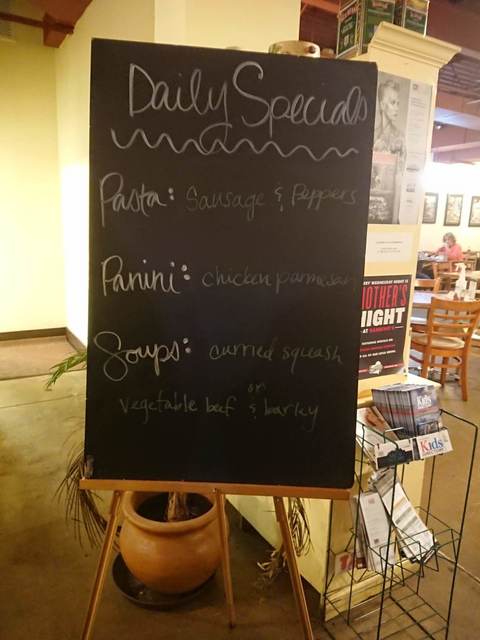 Daily Specials
Pasta: Sausage & Peppers
Panini: chicken parmesan
Soups: curried squash
or
vegetable beef & barley
MOTHER'S
NIGHT
Kids
Kids